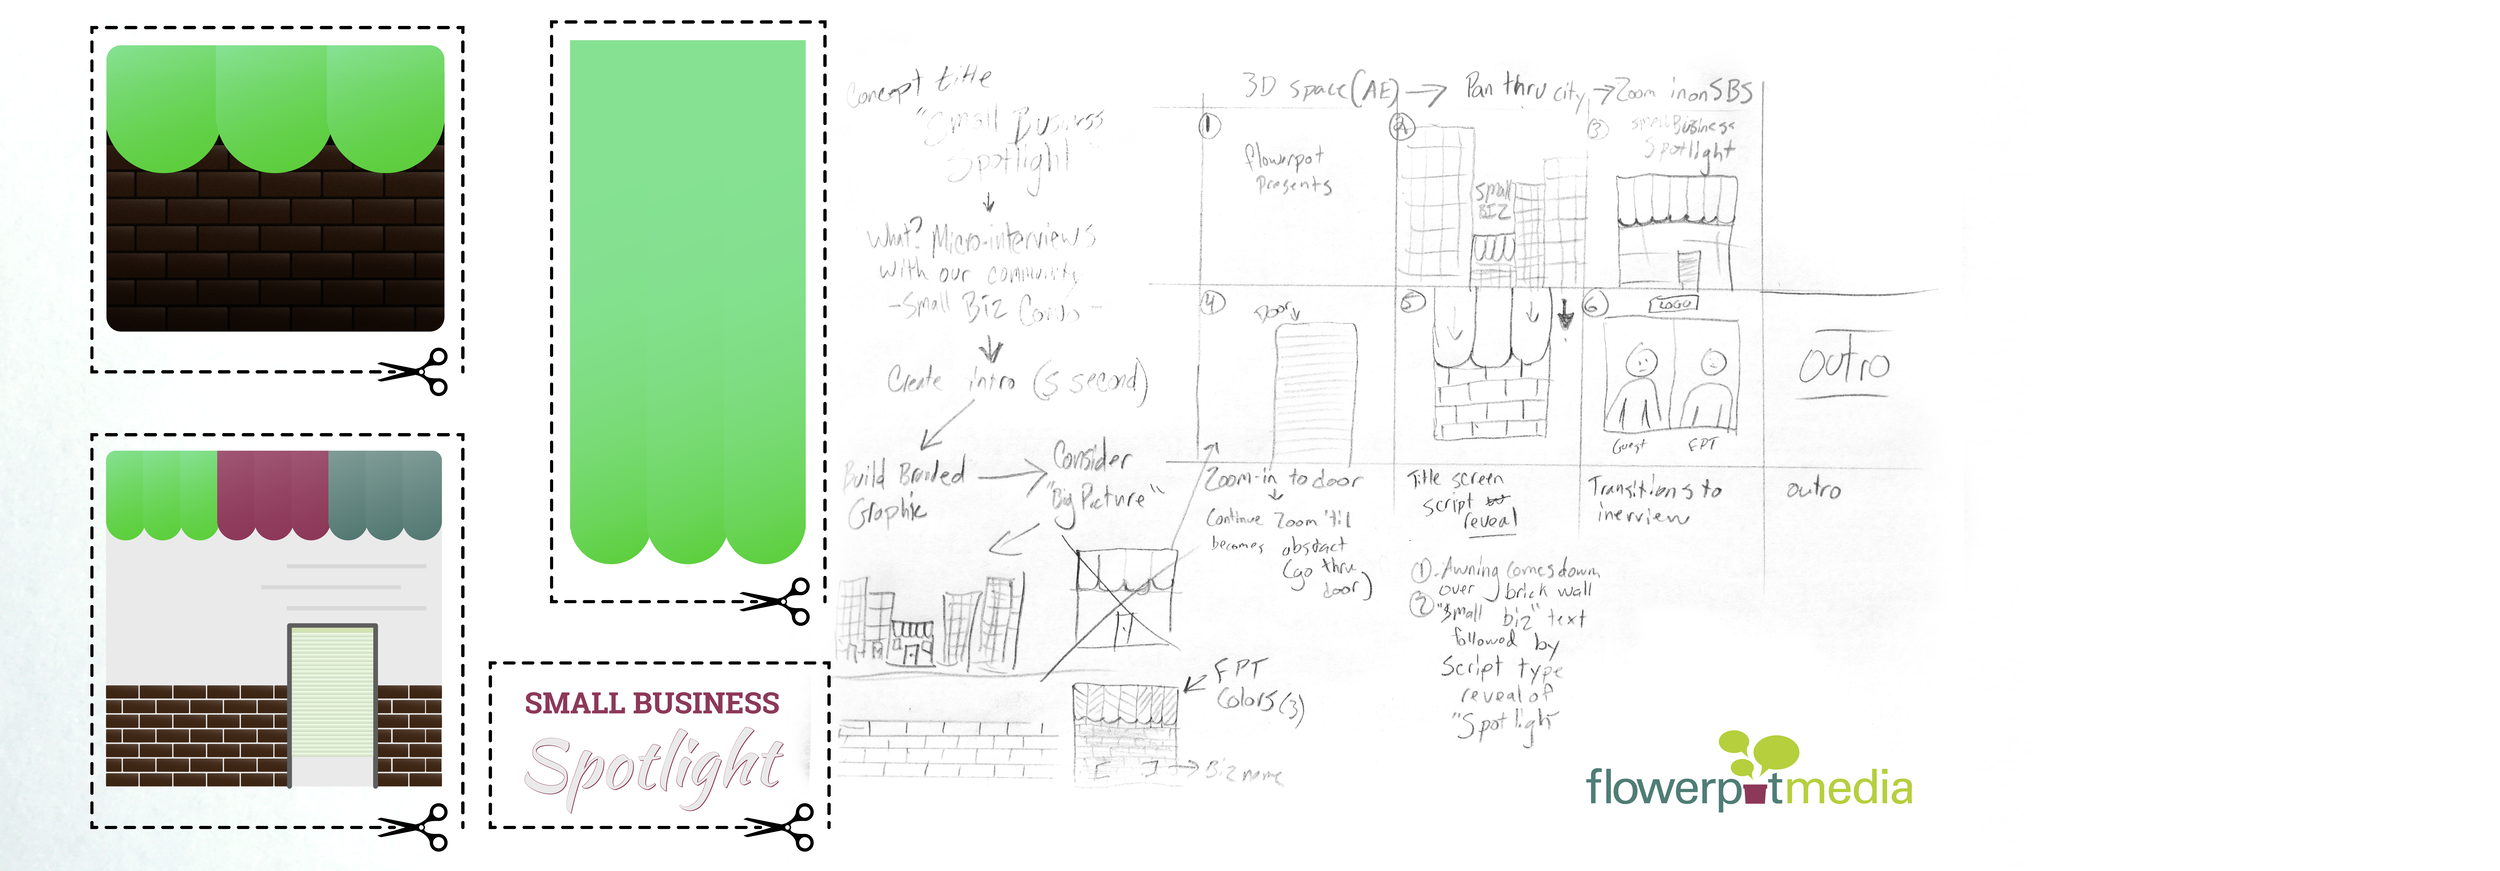 Concept title
"Small Business
Spotlight"
What? Micro-interviews
with our community
-Small Biz Convo-
Create intro (5 second)
Build Branded
Graphic
Consider
"Big Picture"
FPT
Colors (3)
Biz name
3D space (AE) → Pan thru city → Zoom in on SBS
1
flowerpot
presents
2
small
BIZ
3
small Business
Spotlight
4
Door
5
6
LOGO
Guest FPT
outro
Zoom-in to door
Continue Zoom 'til
becomes obstact
(go thru
door)
Title screen
script
reveal
Transitions to
inerview
outro
1 - Awning comes down
over brick wall
2 "small biz" text
followed by
Script type
reveal of
"Spotlight"
SMALL BUSINESS
Spotlight
flowerpotmedia